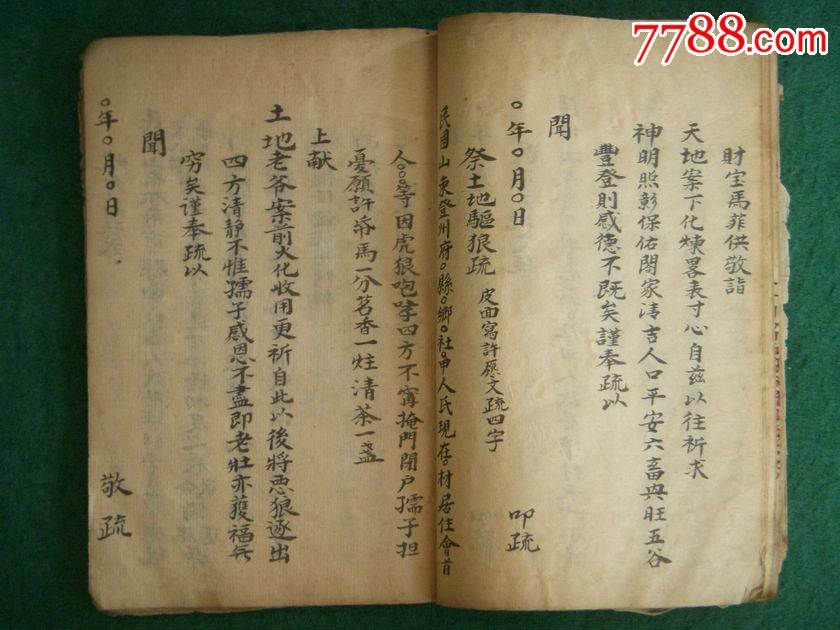 7788.com
財宝馬菲供敬詣
天地案下化煉畧表寸心自兹以往祈求
神明照彰保佑閤家清吉人口平安六畜興旺五谷
豐登則感德不既矣謹奉疏以
聞
○年○月○日 叩疏
祭土地驅狼疏 皮面寫許愿文疏四字
民国山東登州府○縣○鄉○社○甲人民現在○村居住會首
仝○○等因虎狼咆哮四方不寗掩門閉户孺子担
憂願許帋馬一分茗香一炷清茶一盞
上献
土地老爷案前火化收用更祈自此以後將悪狼逐出
四方清静不惟孺子感恩不盡即老壯亦獲福无
穷矣謹奉疏以
聞
○年○月○日 敬疏